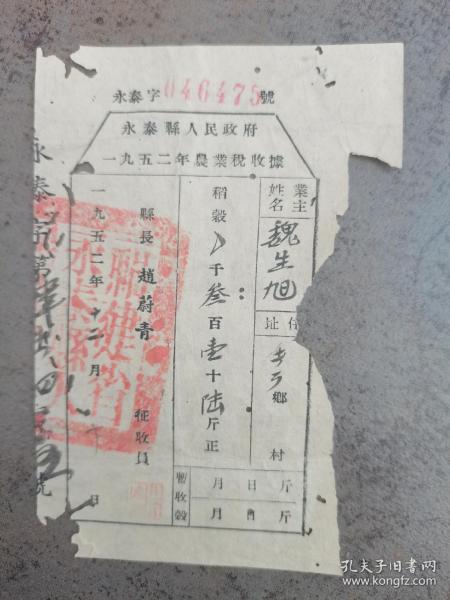 永泰字046475號
永泰縣人民政府
一九五二年農業稅收據
業主姓名 魏生旭 住址 鄉 村
稻穀 千叁百壹十陆斤正
月 日 斤
暫收穀 月 日 斤
縣長 趙蔚青 征收員
一九五二年十二月 日
福建省永泰縣
永泰
第
號
孔夫子旧书网
www.kongfz.com